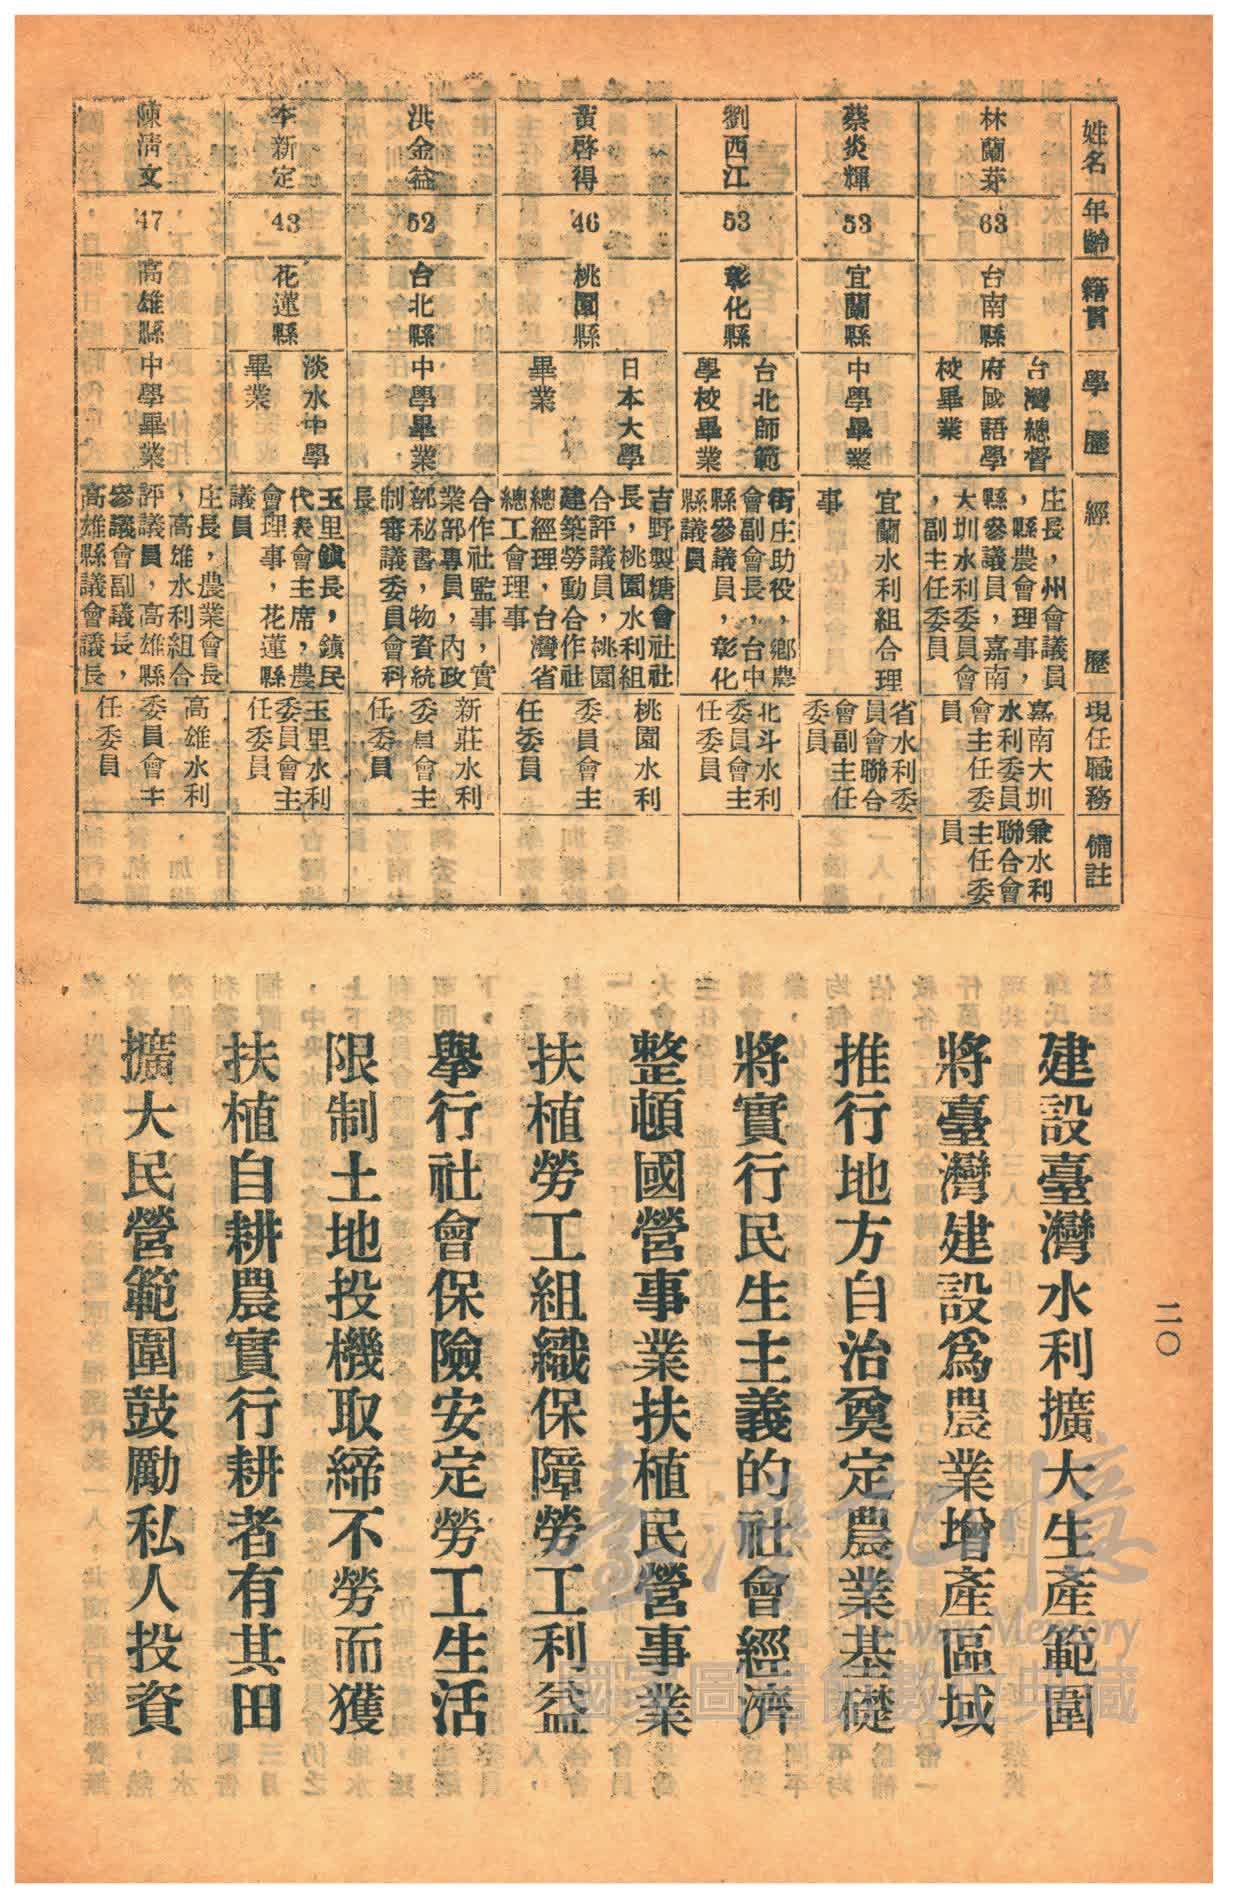 姓名
年齡
籍貫
學歷
經歷
現任職務
備註
林蘭芽
63
台南縣
台灣總督
府國語學
校畢業
庄長,州會議員
,縣農會理事,
縣參議員,嘉南
大圳水利委員會
,副主任委員
嘉南大圳
水利委員
會主任委
員
兼水利
聯合會
主任委
員
蔡炎輝
53
宜蘭縣
中學畢業
宜蘭水利組合理
事
省水利委
員會聯合
會副主任
委員
劉西江
53
彰化縣
台北師範
學校畢業
街庄助役,鄉農
會副會長,台中
縣參議員,彰化
縣議員
北斗水利
委員會主
任委員
黃啓得
46
桃園縣
日本大學
畢業
吉野製糖會社社
長,桃園水利組
合評議員,桃園
建築勞動合作社
總經理,台灣省
總工會理事
桃園水利
委員會主
任委員
洪金益
52
台北縣
中學畢業
合作社監事,實
業部專員,內政
部秘書,物資統
制審議委員會科
長
新莊水利
委員會主
任委員
李新定
43
花蓮縣
淡水中學
畢業
玉里鎮長,鎮民
代表會主席,農
會理事,花蓮縣
議員
玉里水利
委員會主
任委員
陳清文
47
高雄縣
中學畢業
庄長,農業會長
,高雄水利組合
評議員,高雄縣
參議會副議長,
高雄縣議會議長
高雄水利
委員會主
任委員
二〇
建設臺灣水利擴大生產範圍
將臺灣建設爲農業增產區域
推行地方自治奠定農業基礎
將實行民生主義的社會經濟
整頓國營事業扶植民營事業
扶植勞工組織保障勞工利益
舉行社會保險安定勞工生活
限制土地投機取締不勞而獲
扶植自耕農實行耕者有其田
擴大民營範圍鼓勵私人投資
臺灣記憶
Taiwan Memory
國家圖書館數位典藏